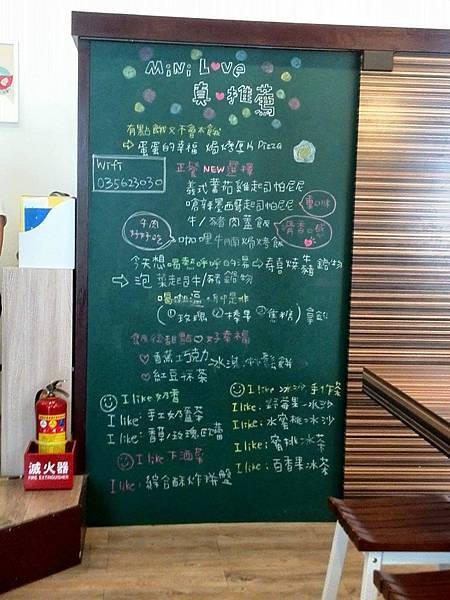 MiNi Love
真♥推薦
有點餓又不會太餓
⇨ 蛋蛋的幸福 焗烤厚片 Pizza
Wifi
035623030
正餐 NEW 選擇
義式蕃茄雞起司帕尼尼
嗆辣墨西哥起司帕尼尼
重口味
牛/豬肉蓋飯
清香口感
牛肉
好好吃
咖哩牛腩焗烤飯
今天想喝熱呼呼的湯 → 壽喜燒牛/豬鍋物
⇨ 泡菜起司牛/豬鍋物
喝咖啡
(①玫瑰 ②榛果 ③焦糖) 拿鐵
飯後甜點♡好幸福
♡ 香蕉巧克力
冰淇淋鬆餅
♡ 紅豆抹茶
I like 奶香
I like: 手工奶蓋茶
I like: 香草/玫瑰歐蕾
I like 下酒菜
I like: 綜合酥炸拼盤
I like 冰沙 手作茶
I like: 野莓果冰沙
I like: 水蜜桃冰沙
I like: 蜜桃冰茶
I like: 百香果冰茶
滅火器
FIRE EXTINGUISHER